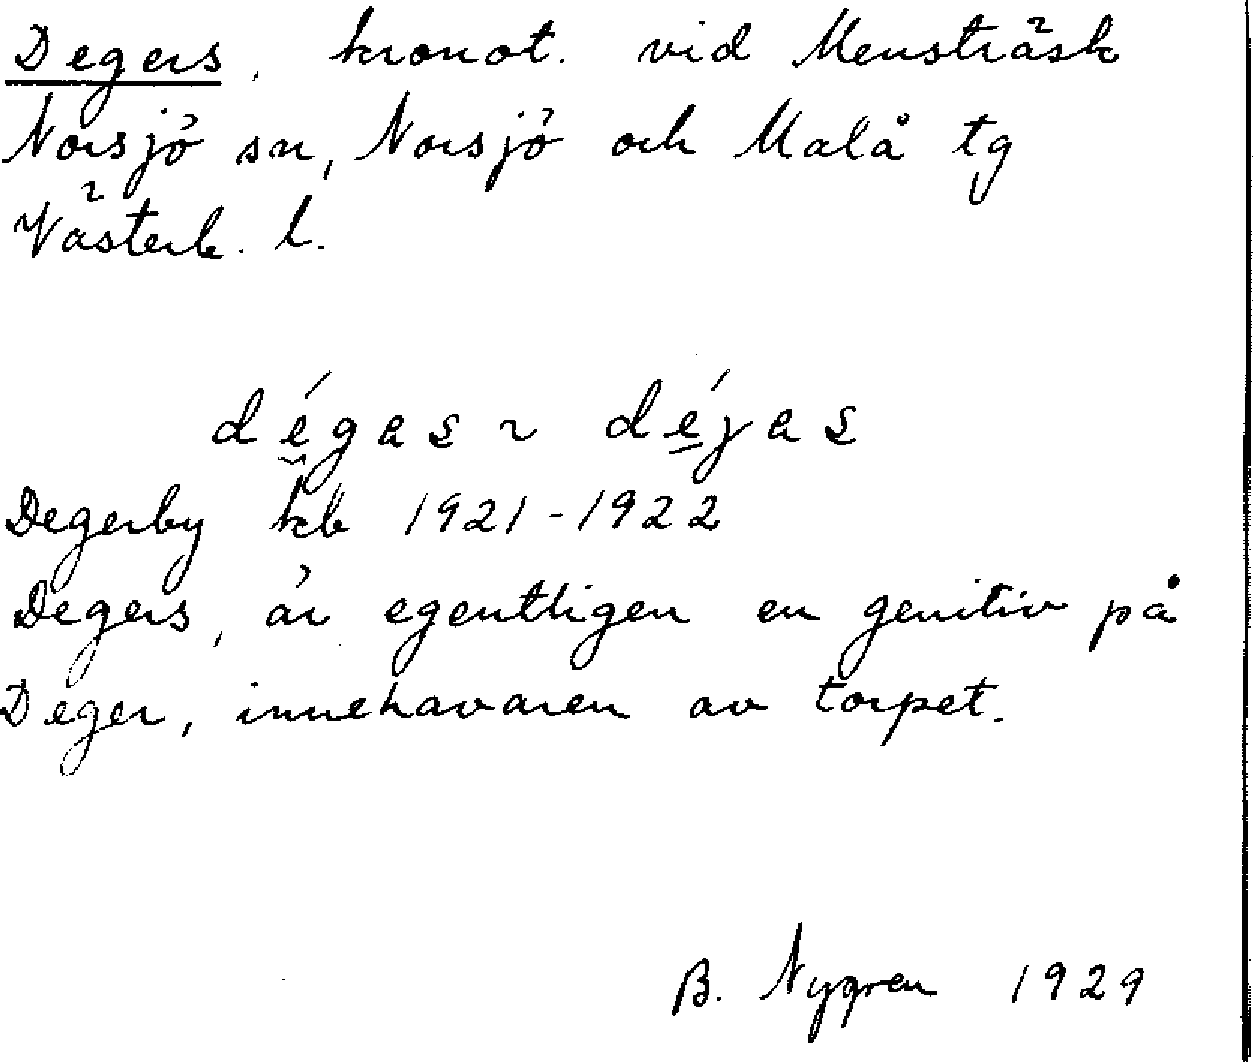 Degers, kronot. vid Mensträsk
Norsjö sn, Norsjö och Malå tg
Västerb. l.
dégas ~ déjas
Degerby kb 1921-1922
Degers, är egentligen en genitiv på
Deger, innehavaren av torpet.
B. Nygren 1929